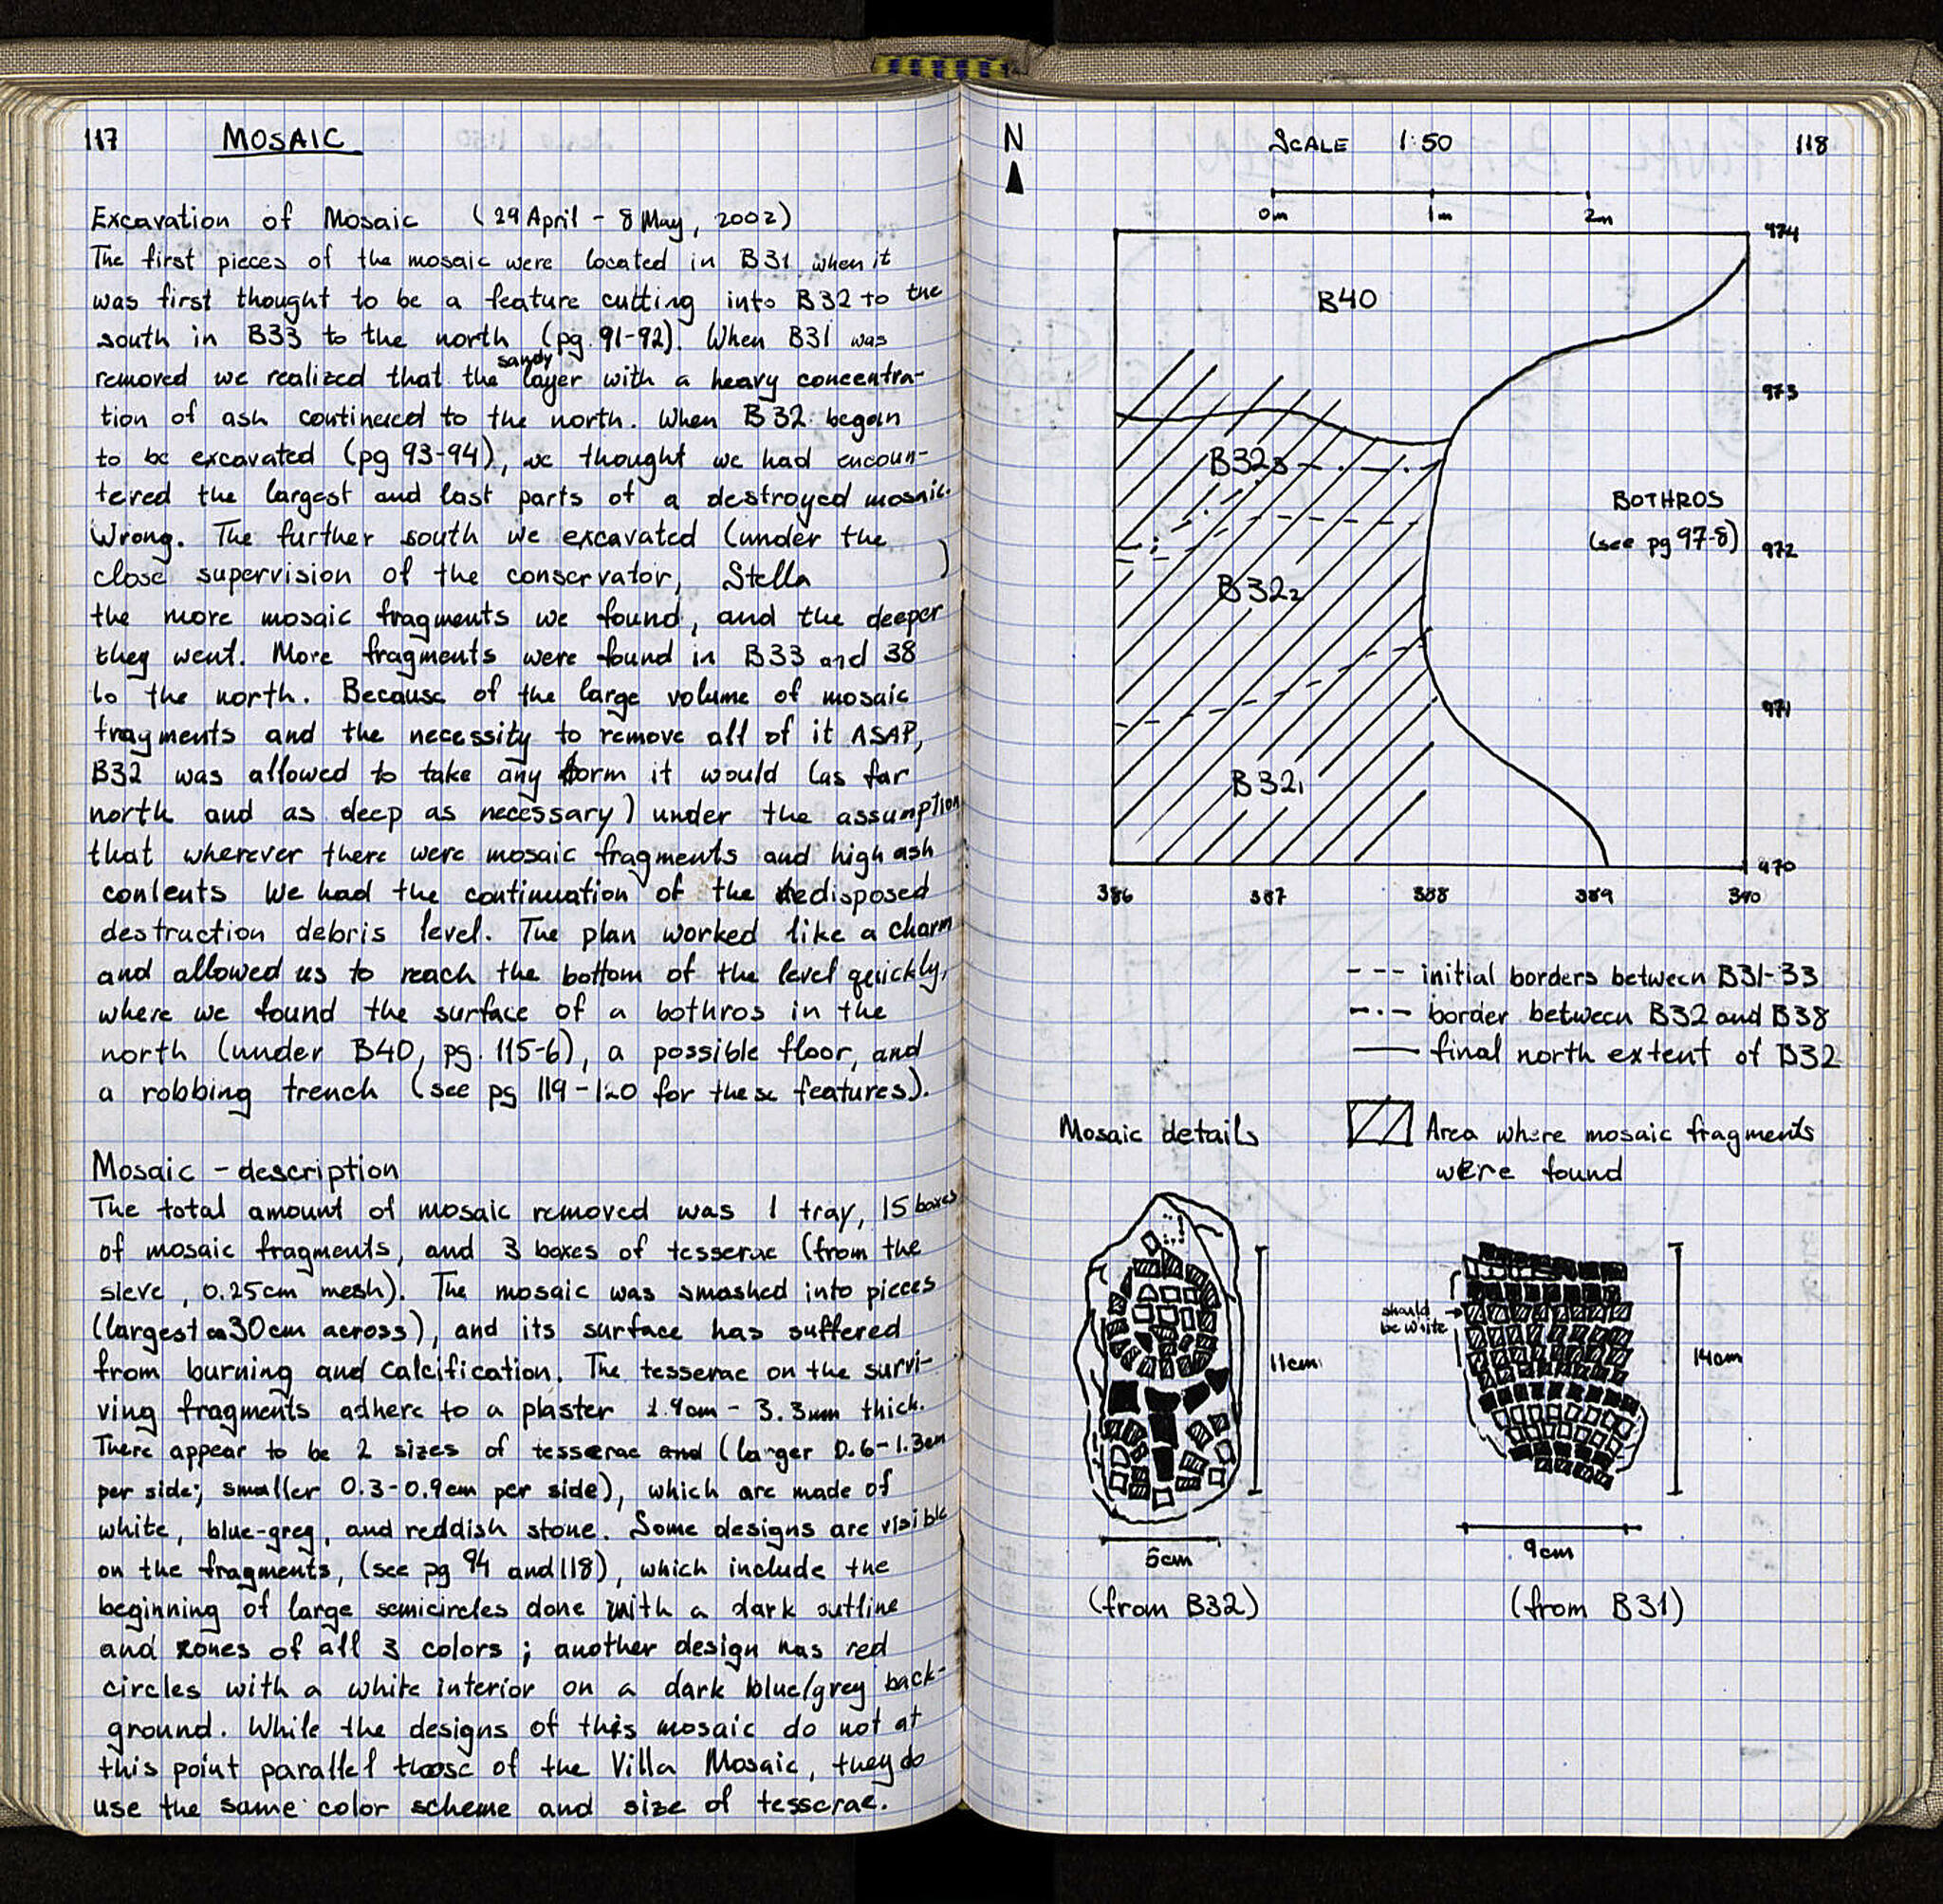 117 MOSAIC
Excavation of Mosaic (29 April - 8 May, 2002)
The first pieces of the mosaic were located in B31 when it
was first thought to be a feature cutting into B32 to the
south in B33 to the north (pg. 91-92). When B31 was
removed we realized that the sandy layer with a heavy concentra-
tion of ash continued to the north. When B32 began
to be excavated (pg 93-94), we thought we had encoun-
tered the largest and last parts of a destroyed mosaic.
Wrong. The further south we excavated (under the
close supervision of the conservator, Stella )
the more mosaic fragments we found, and the deeper
they went. More fragments were found in B33 and 38
to the north. Because of the large volume of mosaic
fragments and the necessity to remove all of it ASAP,
B32 was allowed to take any form it would (as far
north and as deep as necessary) under the assumption
that wherever there were mosaic fragments and high ash
contents we had the continuation of the redisposed
destruction debris level. The plan worked like a charm
and allowed us to reach the bottom of the level quickly,
where we found the surface of a bothros in the
north (under B40, pg. 115-6), a possible floor, and
a robbing trench (see pg 119-120 for these features).
Mosaic - description
The total amount of mosaic removed was 1 tray, 15 boxes
of mosaic fragments, and 3 boxes of tesserae (from the
sieve, 0.25cm mesh). The mosaic was smashed into pieces
(largest ca 30cm across), and its surface has suffered
from burning and calcification. The tesserae on the survi-
ving fragments adhere to a plaster 1.9cm - 3.3mm thick.
There appear to be 2 sizes of tesserae and (larger 0.6-1.3cm
per side; smaller 0.3-0.9cm per side), which are made of
white, blue-grey, and reddish stone. Some designs are visible
on the fragments, (see pg 94 and 118), which include the
beginning of large semicircles done with a dark outline
and zones of all 3 colors; another design has red
circles with a white interior on a dark blue/grey back-
ground. While the designs of this mosaic do not at
this point parallel those of the Villa Mosaic, they do
use the same color scheme and size of tesserae.
N SCALE 1:50 118
0m 1m 2m
974
B40
973
B323
BOTHROS
(see pg 97-8)
972
B322
971
B321
970
386 387 388 389 390
--- initial borders between B31-33
-.- border between B32 and B38
— final north extent of B32
Mosaic details
Area where mosaic fragments
were found
should
be white
11cm
14cm
5cm
9cm
(from B32) (from B31)